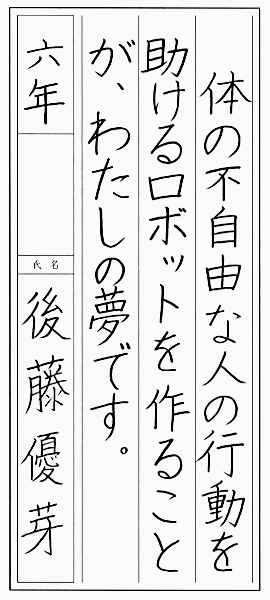 体の不自由な人の行動を
助けるロボットを作ること
が、わたしの夢です。
六年
氏名
後藤優芽